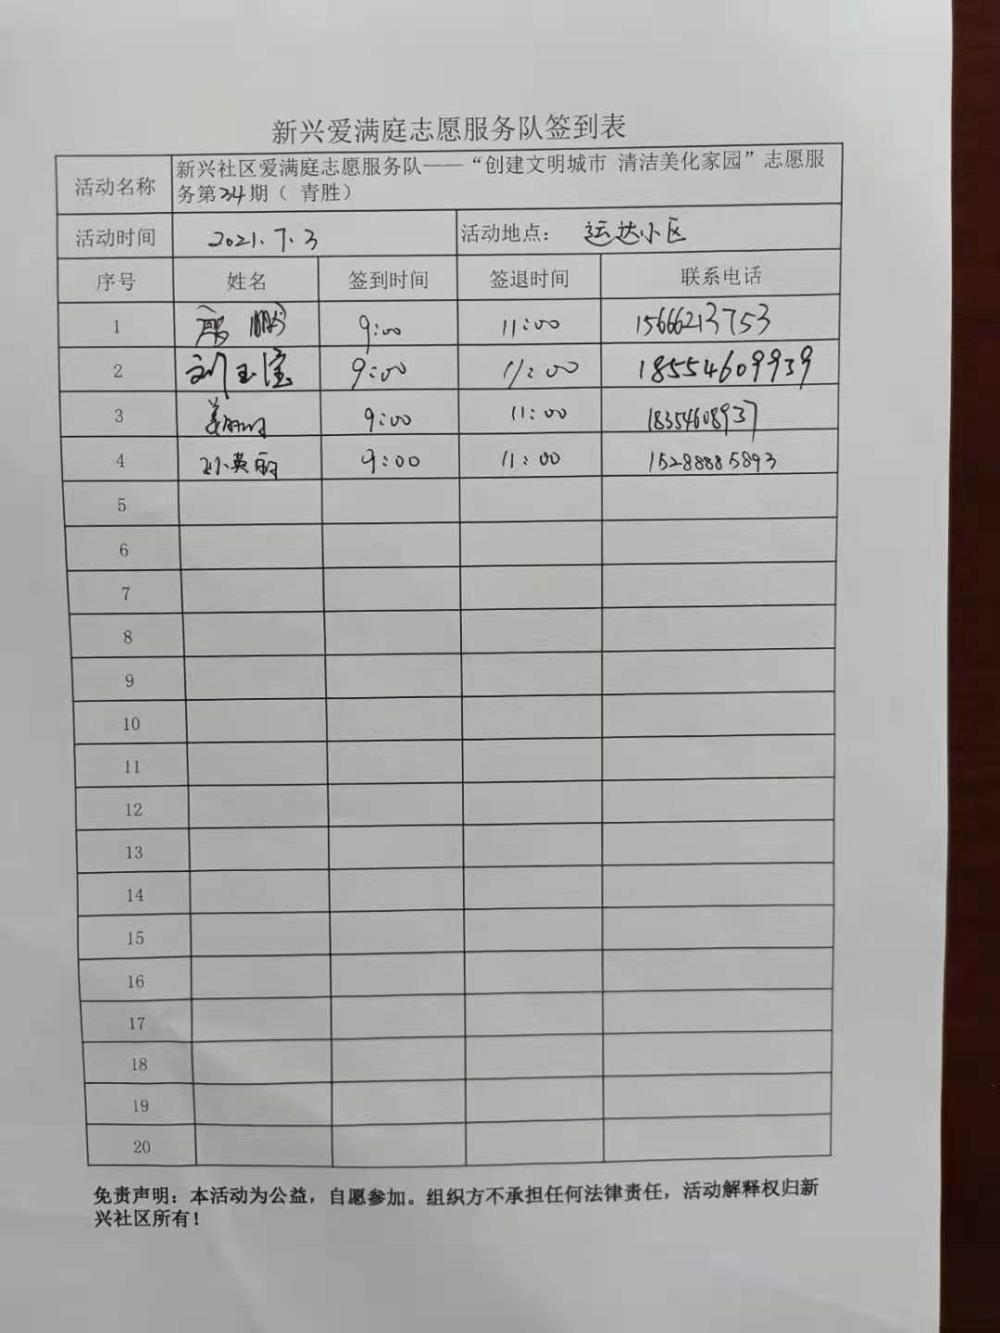 新兴爱满庭志愿服务队签到表
活动名称 新兴社区爱满庭志愿服务队——“创建文明城市 清洁美化家园”志愿服
务第34期（ 青胜）
活动时间 2021.7.3 活动地点： 运达小区
序号 姓名 签到时间 签退时间 联系电话
1 鹏 9:00 11:00 15666213753
2 刘玉滢 9:00 11:00 18554609939
3 姜 9:00 11:00 18354608937
4 孙英丽 9:00 11:00 15288885893
5
6
7
8
9
10
11
12
13
14
15
16
17
18
19
20
免责声明：本活动为公益，自愿参加。组织方不承担任何法律责任，活动解释权归新
兴社区所有！